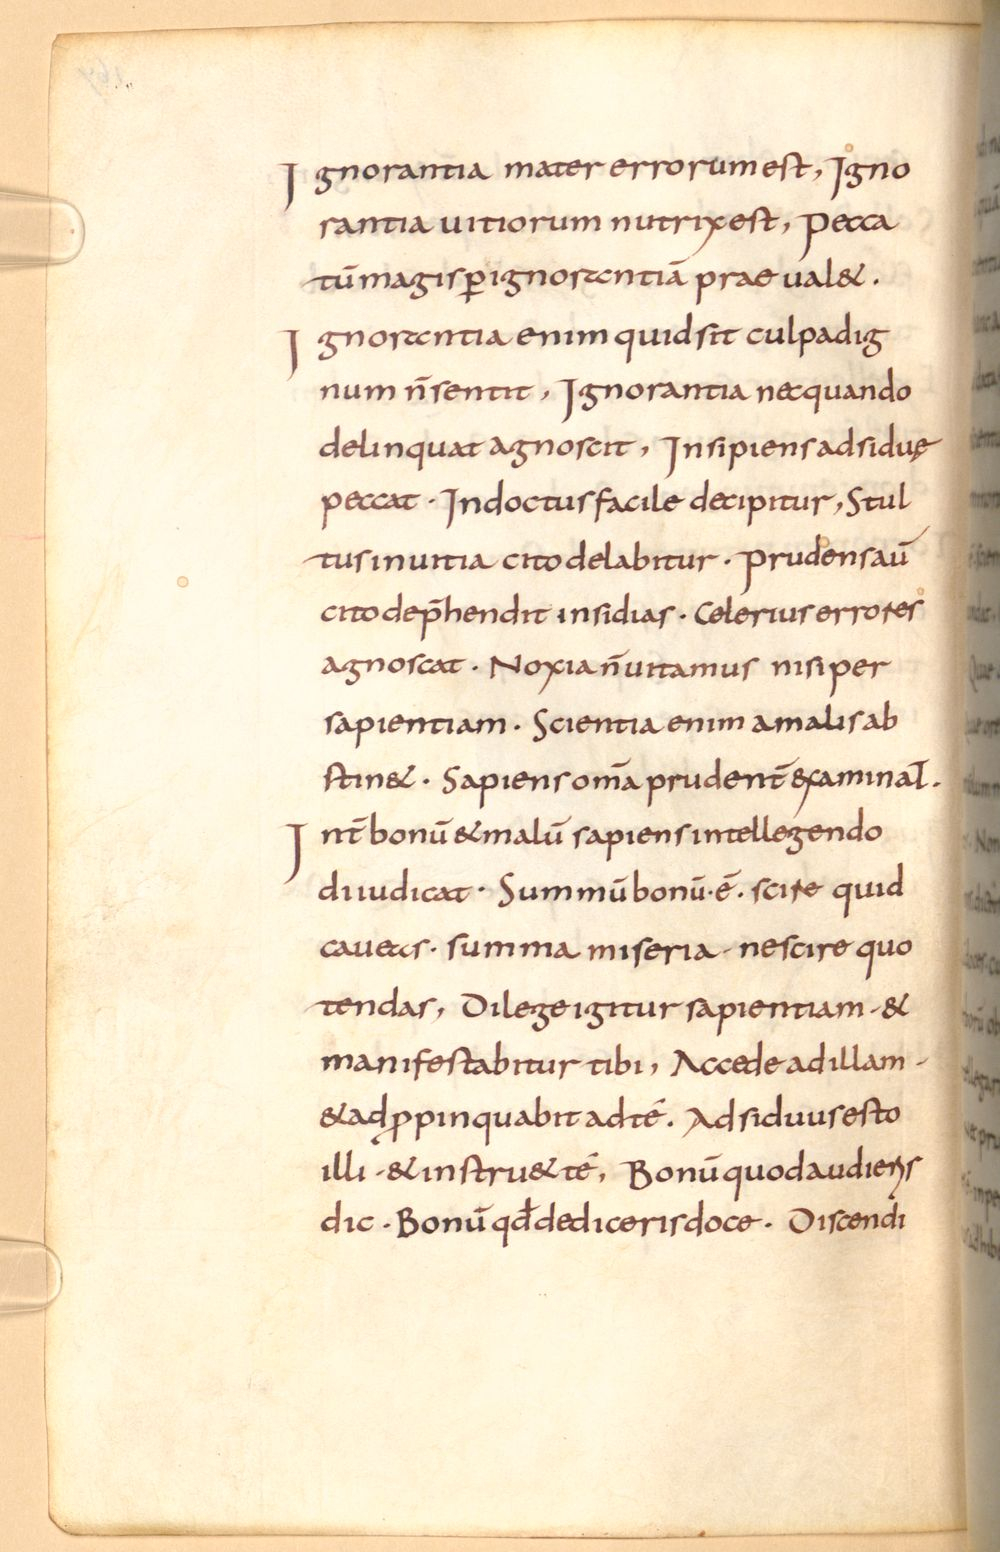 Ignorantia mater errorum est, Igno
rantia uitiorum nutrix est, pecca
tū magis ꝑ ignorantiā praeual&.
Ignorantia enim quid sit culpa dig
num n̄ sentit, Ignorantia nec quando
delinquat agnoscit, Insipiens adsiduę
peccat · Indoctus facile decipitur, Stul
tus in uitia cito delabitur · prudens aū
cito dep̄hendit insidias · Celerius errores
agnoscat · Noxia n̄ uitamus nisi per
sapientiam · Scientia enim a malis ab
stin& · Sapiens om̄a prudent̄ &xaminat̄ .
Int̄ bonū & malū sapiens intellegendo
diiudicat · Summū bonū · ē · scire quid
caueas · summa miseria - nescire quo
tendas, Dilege igitur sapientiam - &
manifestabitur tibi, Accede ad illam -
& adp̄pinquabit ad té. Adsiduus esto
illi - & instru& té, Bonū quod audieris
dic · Bonū qd̄ dediceris doce · Discendi